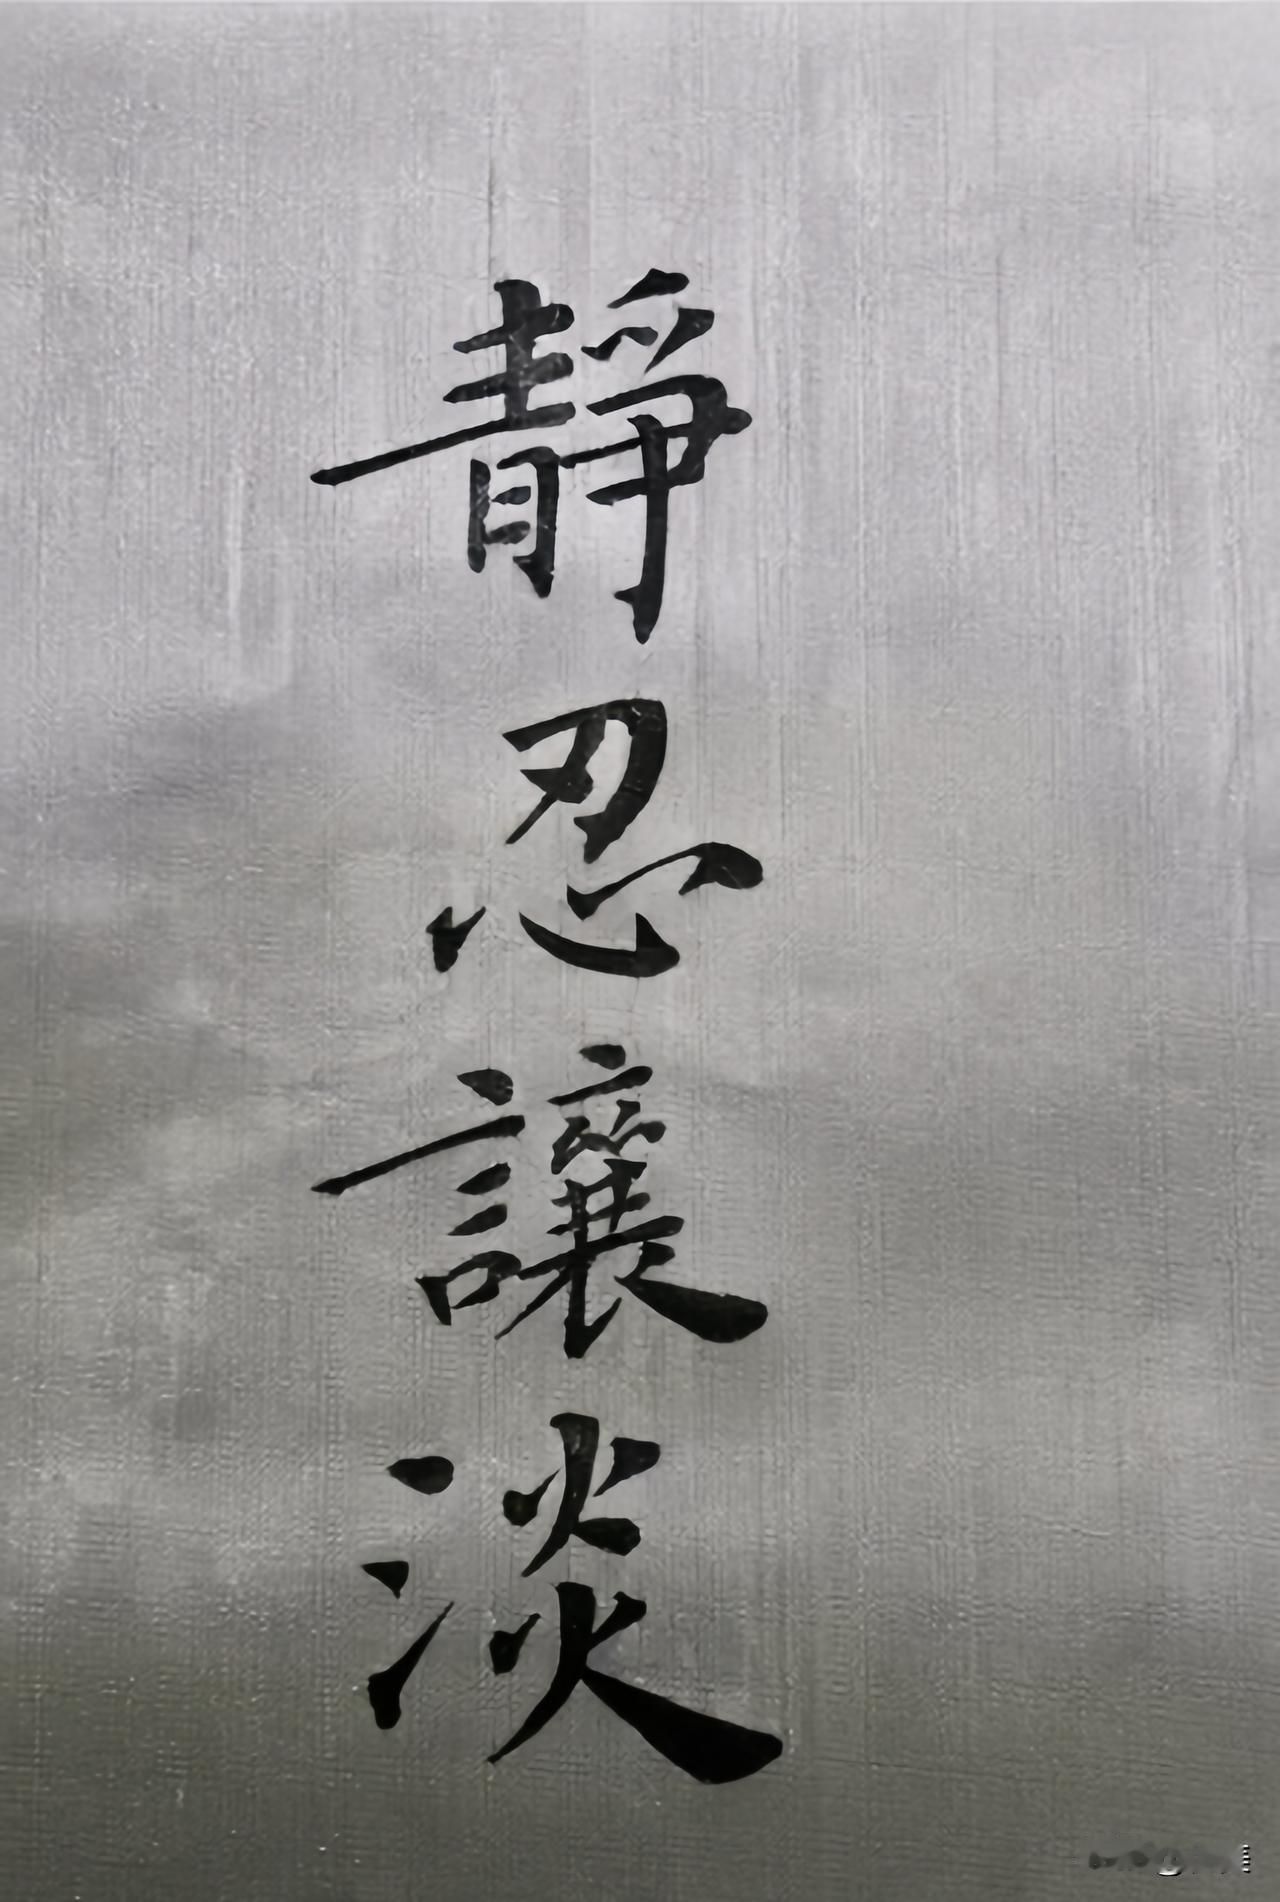 靜忍讓淡